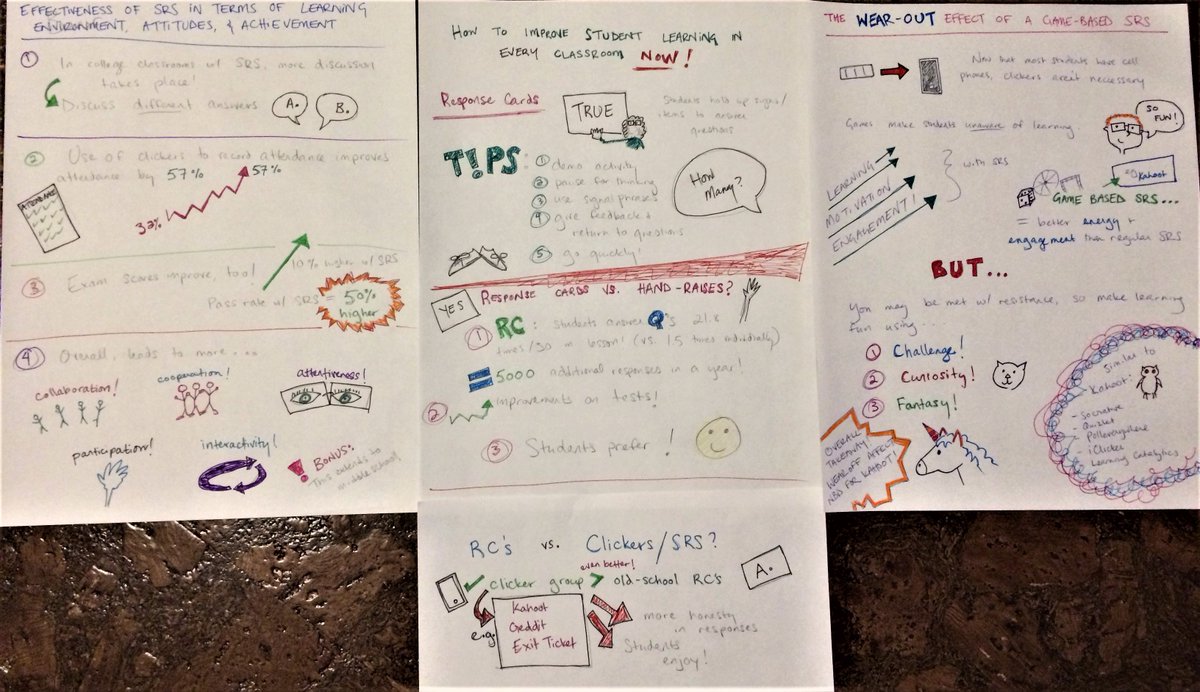 EFFECTIVENESS OF SRS IN TERMS OF LEARNING
ENVIRONMENT, ATTITUDES, & ACHIEVEMENT
1 In college classrooms w/ SRS, more discussion
takes place!
Discuss different answers
A.
B.
2 Use of clickers to record attendance improves
attendance by 57%
57%
ATTENDANCE
32%
3 Exam scores improve, too!
10% higher w/ SRS
Pass rate w/ SRS = 50%
higher
4 Overall, leads to more....
collaboration!
cooperation!
attentiveness!
participation!
interactivity!
! BONUS:
This extends to
middle school!
HOW TO IMPROVE STUDENT LEARNING IN
EVERY CLASSROOM NOW!
Response Cards
TRUE
Students hold up signs/
items to answer
questions
T!PS:
1 demo activity
2 pause for thinking
3 use signal phrases
4 give feedback +
return to questions
5 go quickly!
How
Many?
YES
RESPONSE CARDS VS. HAND-RAISES?
1 RC: students answer Q's 21.8
times/30 m lesson! (vs. 1.5 times individually)
= 5000 additional responses in a year!
2 improvements on tests!
3 Students prefer!
RC's vs. Clickers/SRS?
even better!
clicker group > old-school RC's
A.
e.g.
Kahoot
Geddit
Exit Ticket
more honesty
in responses
Students
enjoy!
THE WEAR-OUT EFFECT OF A GAME-BASED SRS
Now that most students have cell
phones, clickers aren't neccessary
Games make students unaware of learning.
SO
FUN!
LEARNING
MOTIVATION
ENGAGEMENT!
with SRS
Kahoot
GAME BASED SRS...
= better energy +
engagement than regular SRS
BUT...
You may be met w/ resistance, so make learning
fun using...
1 Challenge!
2 Curiosity!
3 Fantasy!
OVERALL
TAKEAWAY
WEAR-OFF AFFECT
NBD FOR KAHOOT!
Similar to
Kahoot:
- Socrative
- Quizlet
- Polleverywhere
- iClicker
- Learning Catalytics